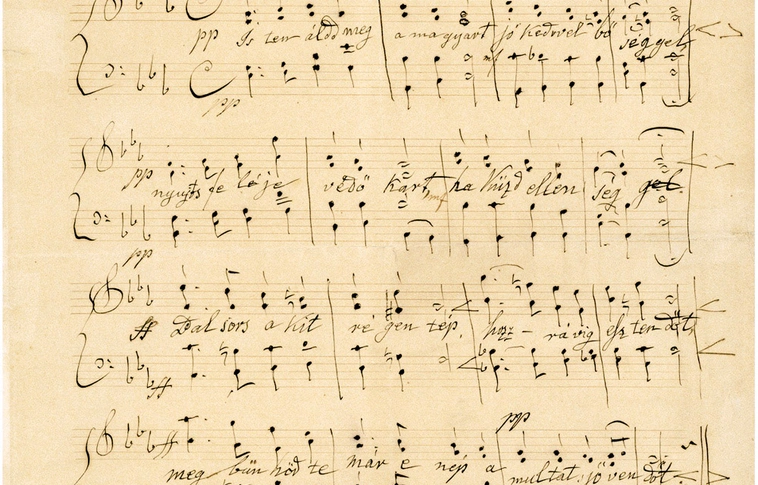 pp Is ten áldd meg a magyart jó kedvvel bő séggel
mf
pp
pp nyujts fe léje védő kart, ha küzd ellen ség gel.
mf
pp
ff Bal sors a kit ré gen tép, hozz – rá víg esz ten dőt,
ff
pp
ff meg bűn hőd te már e nép a multat, jö ven dőt.